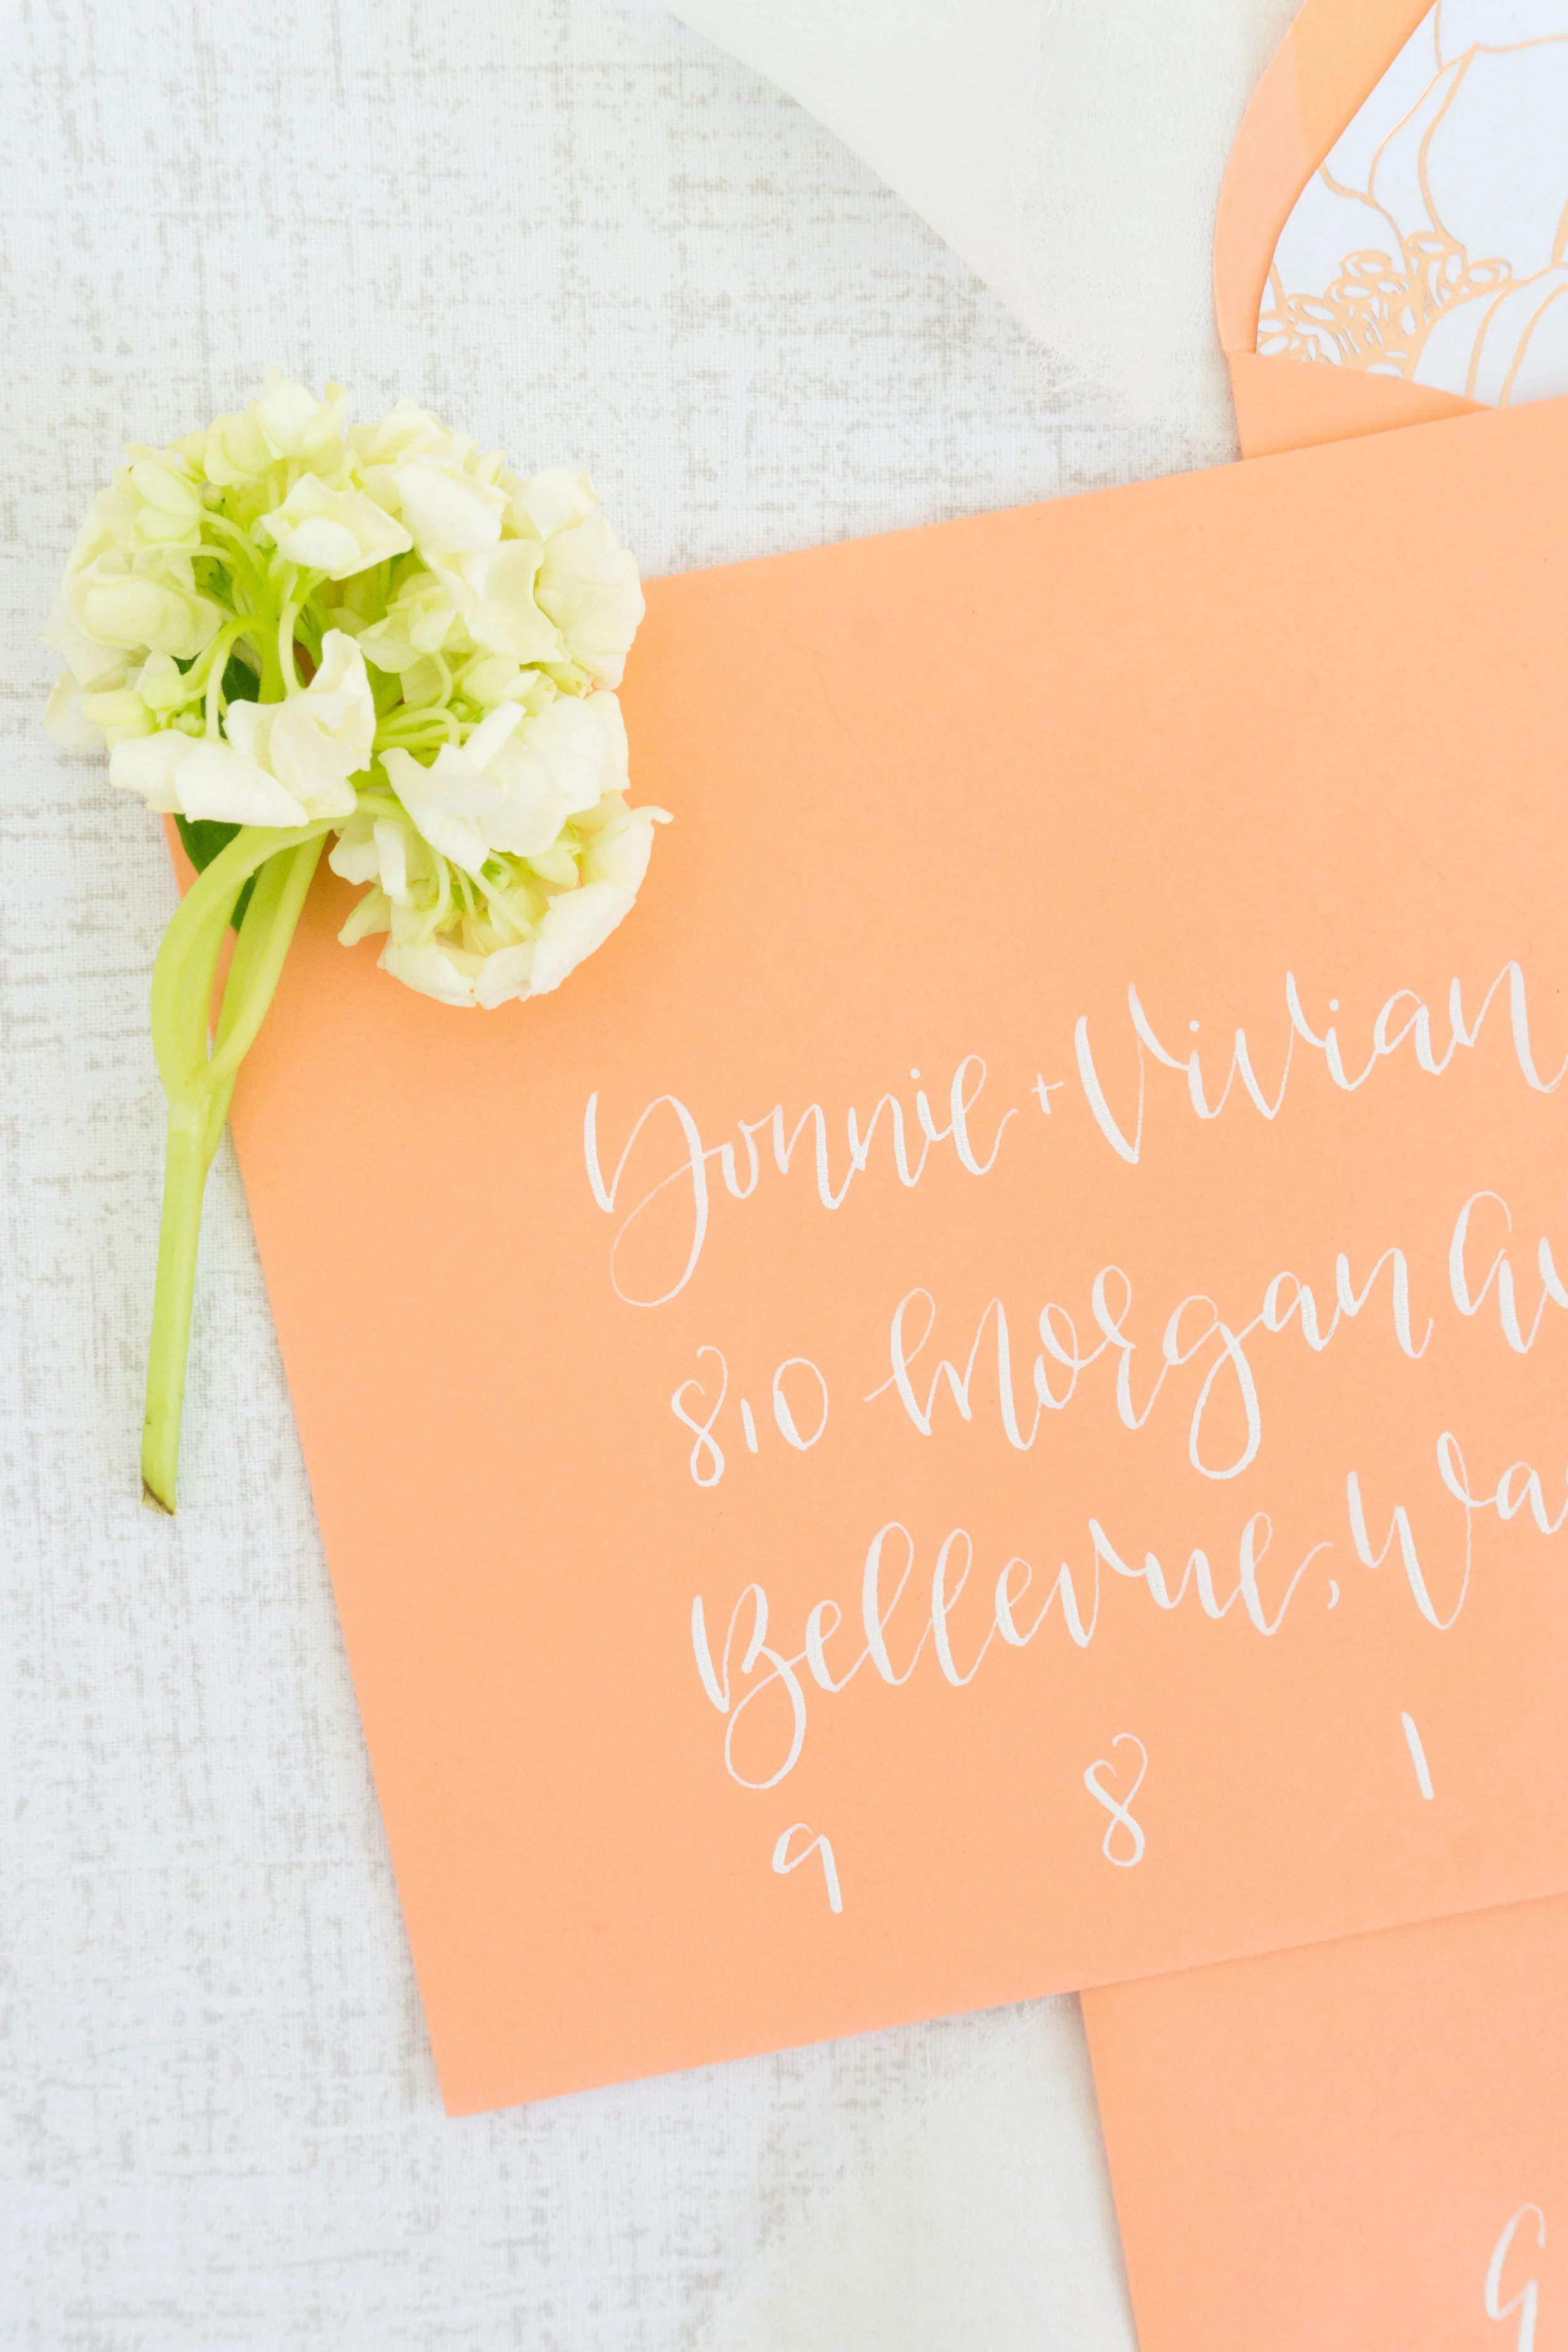 Donnie + Vivian
810 Morgan Av
Bellevue, Wa
9 8 1
G